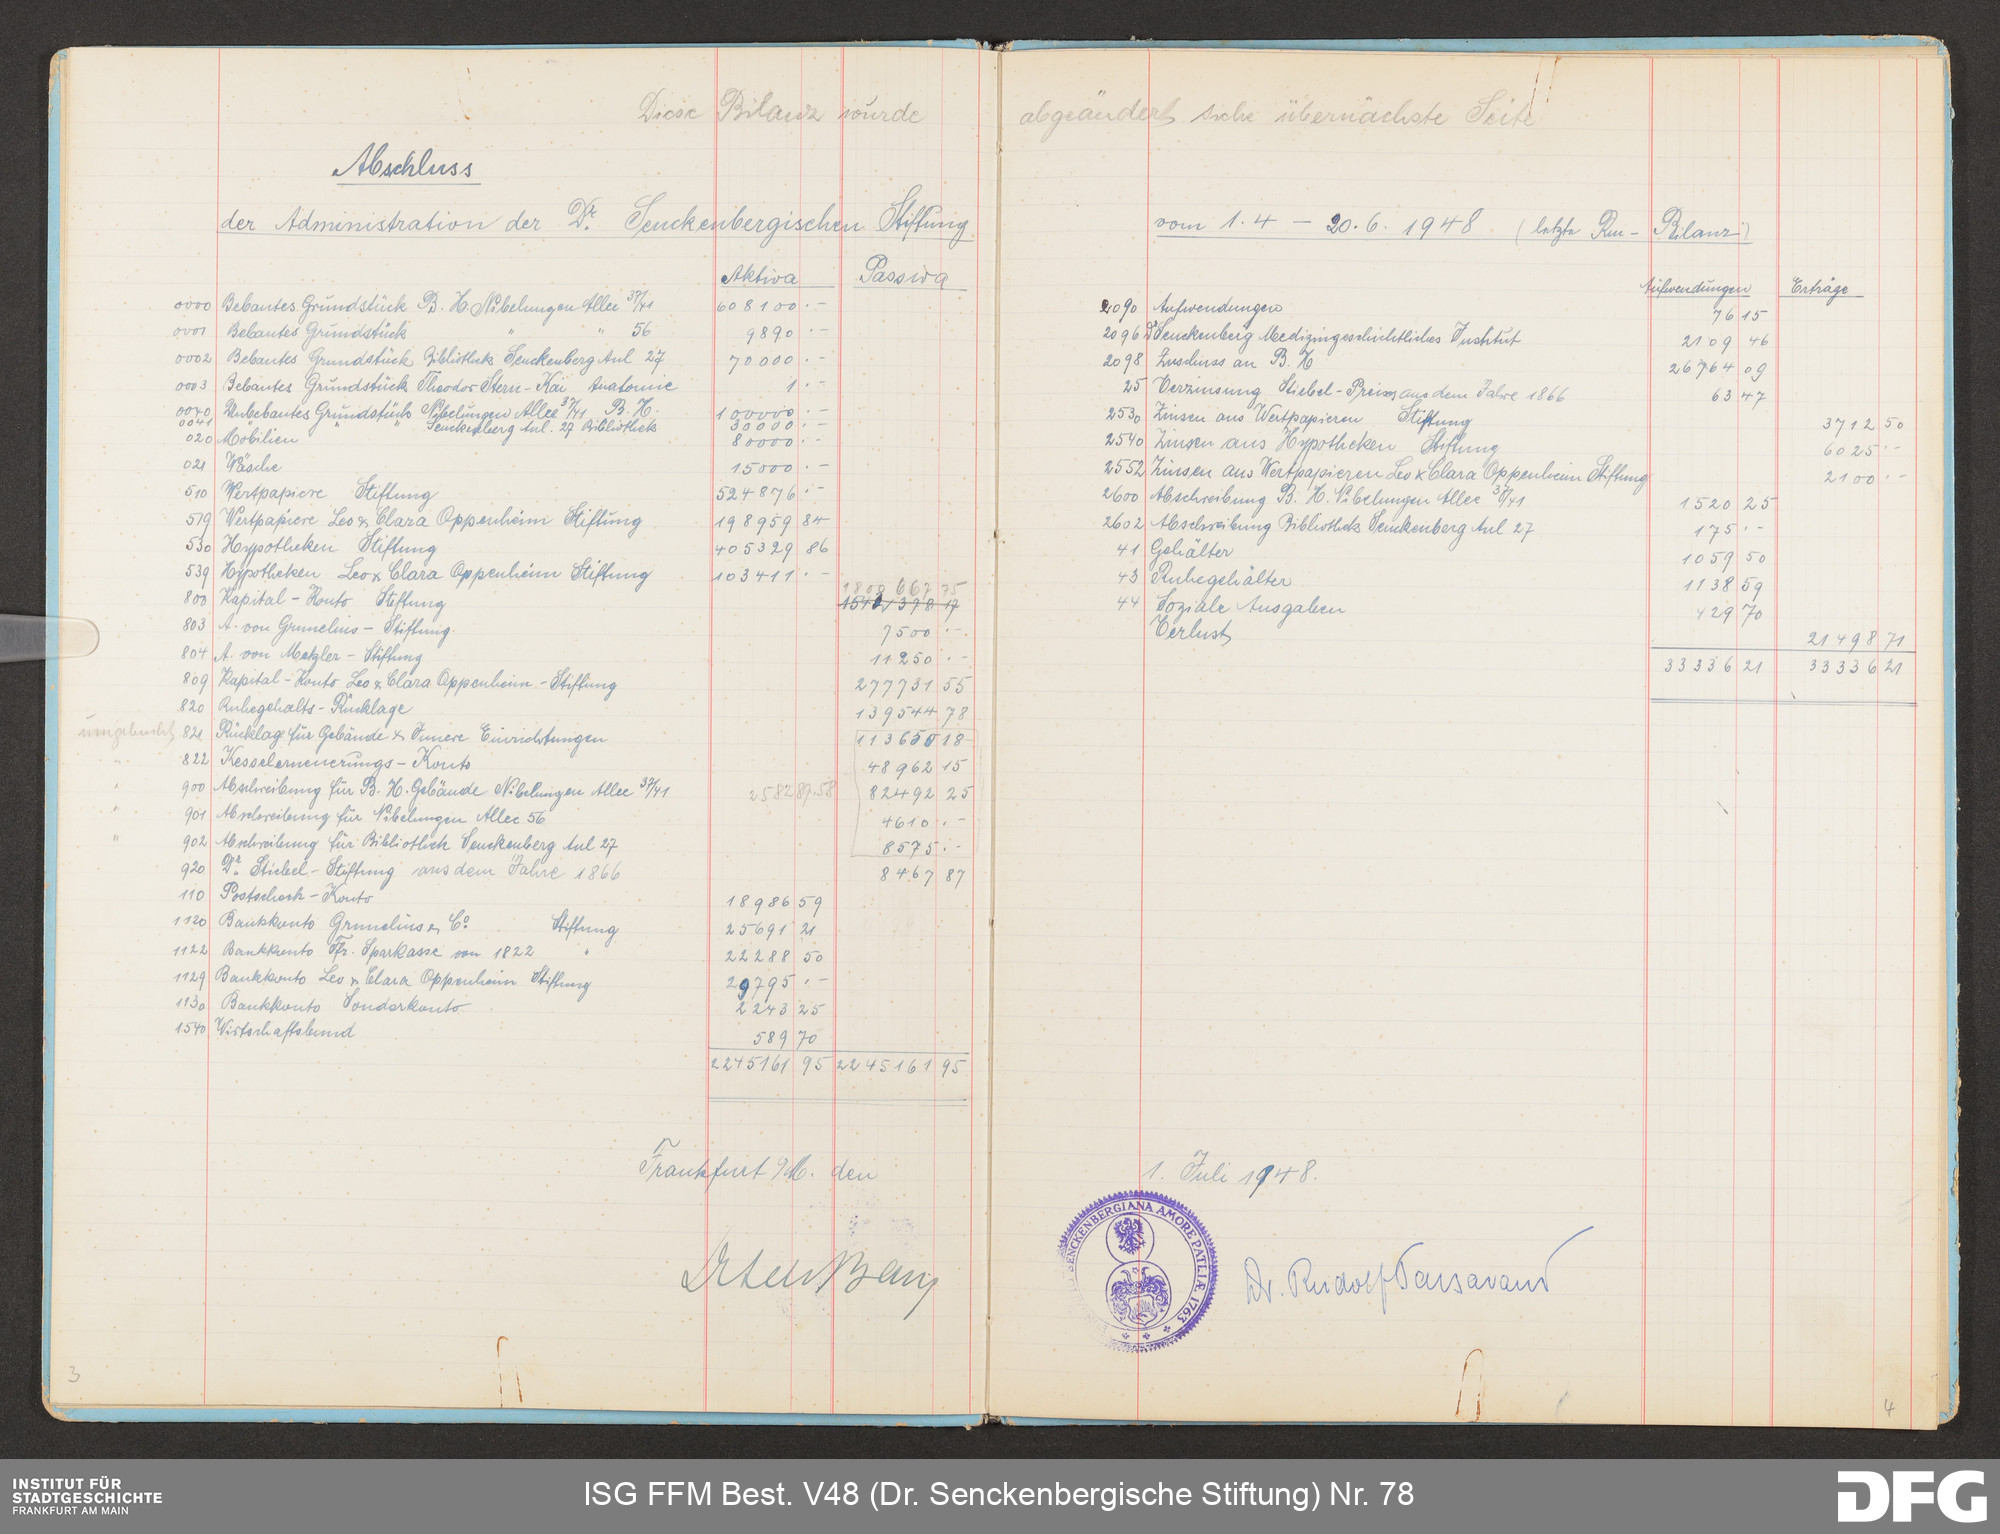 Diese Bilanz wurde abgeändert siehe übernächste Seite
Abschluss
der Administration der Dr. Senckenbergischen Stiftung vom 1.4 – 20.6.1948 (letzte Rm – Bilanz)
Aktiva Passiva
0000 Bebautes Grundstück B. H. Nibelungen Allee 37/41 608100.-
0001 Bebautes Grundstück " " 56 9890.-
0002 Bebautes Grundstück Bibliothek Senckenberg Anl 27 70000.-
0003 Bebautes Grundstück Theodor Stern-Kai Anatomie 1.-
0040 Unbebautes Grundstück Nibelungen Allee 37/41 B. H. 100000.-
0041 " " Senckenberg Anl. 27 Bibliothek 30000.-
020 Mobilien 80000.-
021 Wäsche 15000.-
510 Wertpapiere Stiftung 524876.-
519 Wertpapiere Leo & Clara Oppenheim Stiftung 198959 84
530 Hypotheken Stiftung 405329 86
539 Hypotheken Leo & Clara Oppenheim Stiftung 103411.-
1800 667 75
800 Kapital-Konto Stiftung 17
803 A. von Grunelius – Stiftung 7500.-
804 A. von Metzler – Stiftung 11250.-
809 Kapital-Konto Leo & Clara Oppenheim – Stiftung 277731 55
820 Ruhegehalts-Rücklage 139544 78
umgebucht 821 Rücklage für Gebäude & Innere Einrichtungen 113650 18
" 822 Kesselerneuerungs-Konto 48962 15
" 900 Abschreibung für B. H. Gebäude Nibelungen Allee 37/41 258289.58 82492 25
" 901 Abschreibung für Nibelungen Allee 56 4610.-
" 902 Abschreibung für Bibliothek Senckenberg Anl 27 8575.-
920 Dr. Stiebel-Stiftung aus dem Jahre 1866 8467 87
110 Postscheck-Konto 18986 59
1120 Bankkonto Grunelius & Co Stiftung 25691 21
1122 Bankkonto Ffr. Sparkasse von 1822 " 22288 50
1129 Bankkonto Leo & Clara Oppenheim Stiftung 29795.-
1130 Bankkonto Sonderkonto 2243 25
1540 Wirtschaftsbund 589 70
2245161 95 2245161 95
Frankfurt a/M. den
Aufwendungen Erträge
2090 Aufwendungen 76 15
2096 Dr Senckenberg Medizingeschichtliches Institut 2109 46
2098 Zuschuss an B. H 26764 09
25 Verzinsung Stiebel-Preises aus dem Jahre 1866 63 47
2530 Zinsen aus Wertpapieren Stiftung 3712 50
2540 Zinsen aus Hypotheken Stiftung 6025.-
2552 Zinsen aus Wertpapieren Leo & Clara Oppenheim Stiftung 2100.-
2600 Abschreibung B. H. Nibelungen Allee 37/41 1520 25
2602 Abschreibung Bibliothek Senckenberg Anl 27 175.-
41 Gehälter 1059 50
43 Ruhegehälter 1138 59
44 Soziale Ausgaben 429 70
Verlust 21498 71
33336 21 33336 21
1. Juli 1948.
SENCKENBERGIANA AMORE PATRIÆ 1763
Dr. Rudolf Passavant
3
4
INSTITUT FÜR
STADTGESCHICHTE
FRANKFURT AM MAIN
ISG FFM Best. V48 (Dr. Senckenbergische Stiftung) Nr. 78
DFG